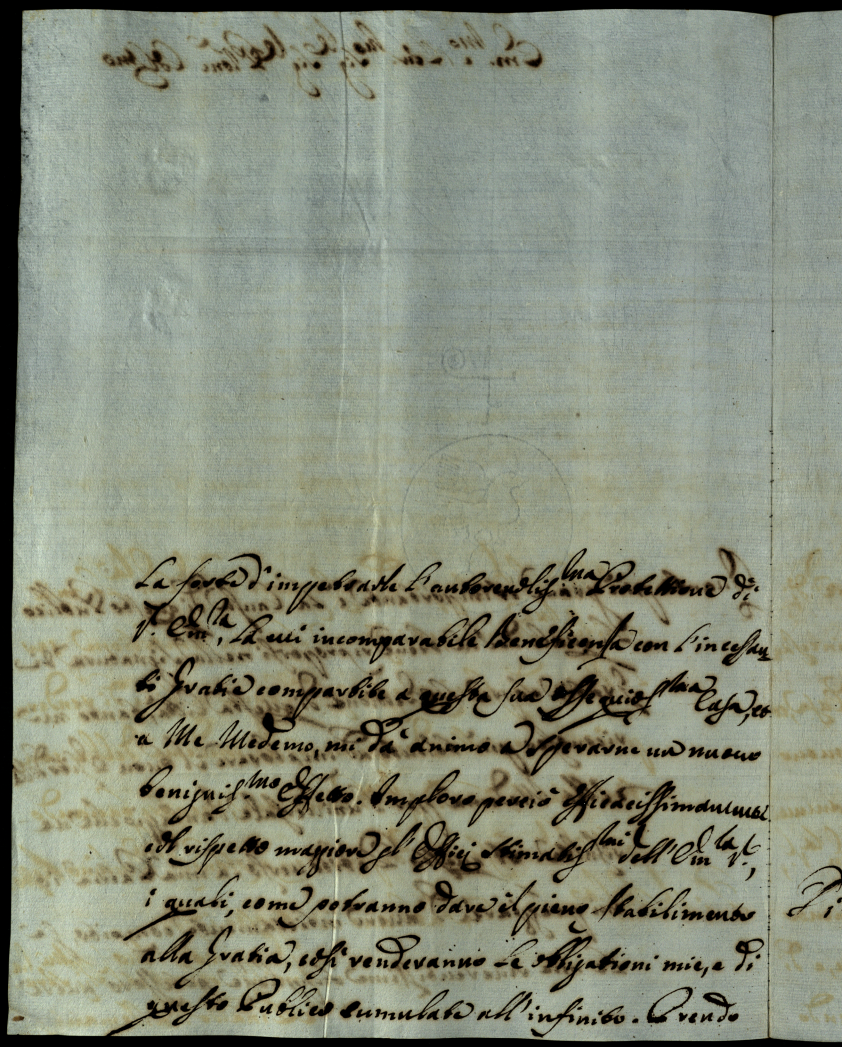 La sorte d'impetrarle l'autorevolis.ma Protettione di
V. Em.za, La cui incomparabile Beneficenza con l'incessan
ti Gratie compartite a questa sua ossequios.ma Casa, et
a Me Medemo, mi dà animo a sperarne un nuovo
benignis.mo Effetto. Imploro perciò efficacissimamente
col rispetto magiore gl'Offici stimatis.mi dell'Em.za V.,
i quali, come potranno dare il pieno stabilimento
alla Gratia, così renderanno le obligationi mie, e di
questo Publico cumulate all'infinito. Prendo